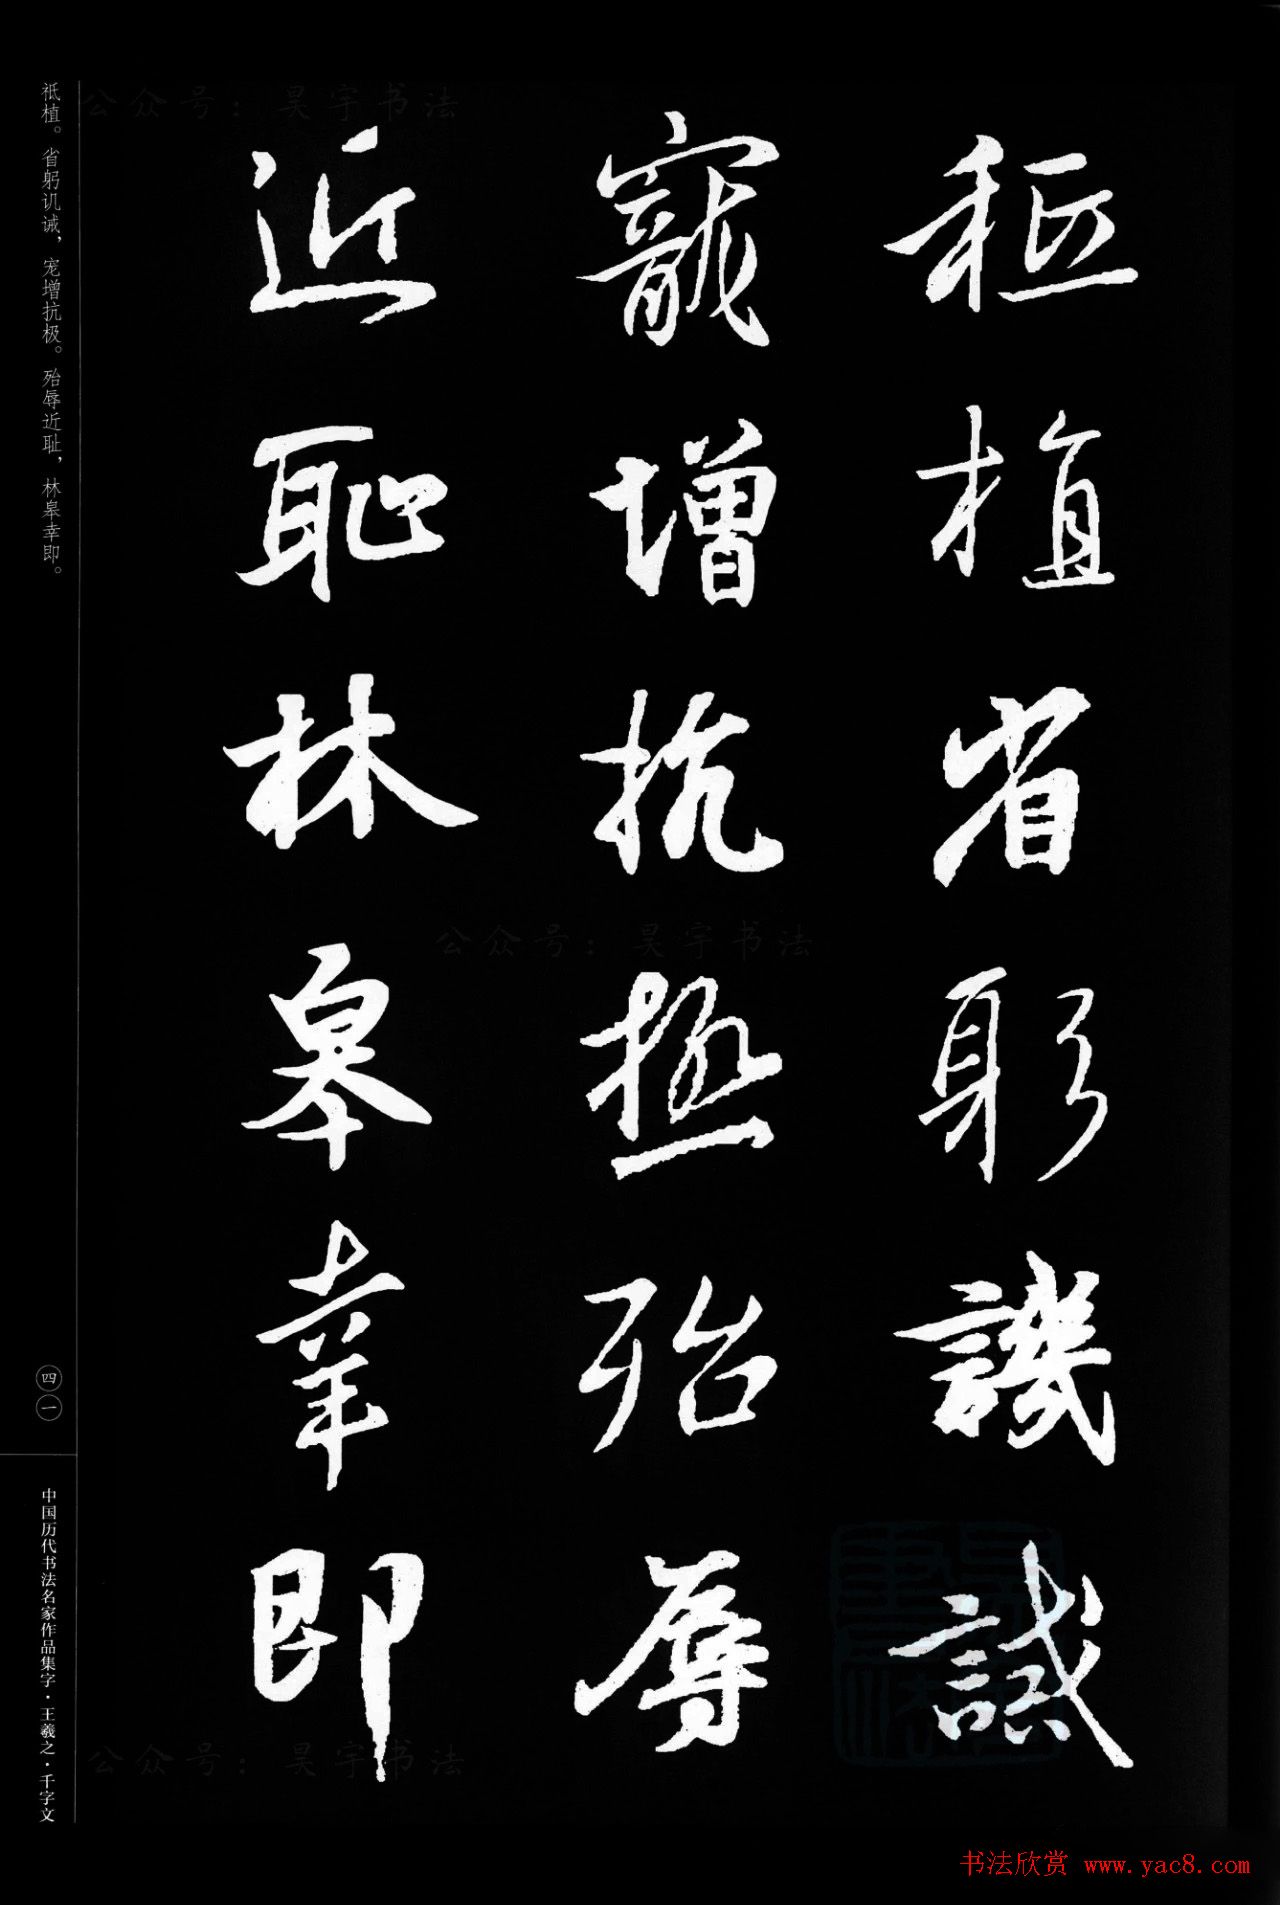 祗植省躬譏誡
寵增抗極殆辱
近恥林皋幸即
祗植。省躬讥诫，宠增抗极。殆辱近耻，林皋幸即。
四一
中国历代书法名家作品集字·王羲之·千字文
公众号：昊宇书法
公众号：昊宇书法
公众号：昊宇书法
书法欣赏 www.yac8.com